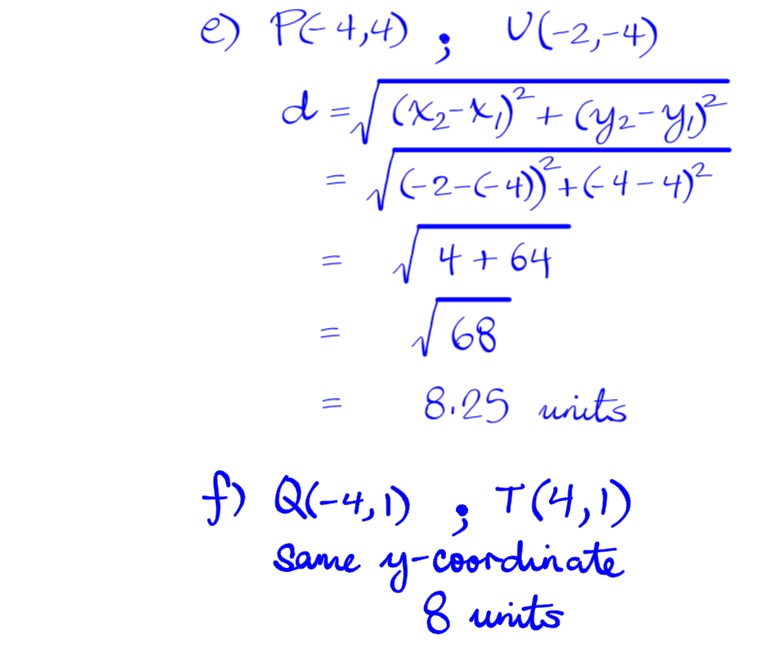 e) P(-4,4) ; U(-2,-4)
d = √(x₂-x₁)² + (y₂-y₁)²
= √(-2-(-4))² + (-4-4)²
= √4 + 64
= √68
= 8.25 units
f) Q(-4,1) ; T(4,1)
same y-coordinate
8 units